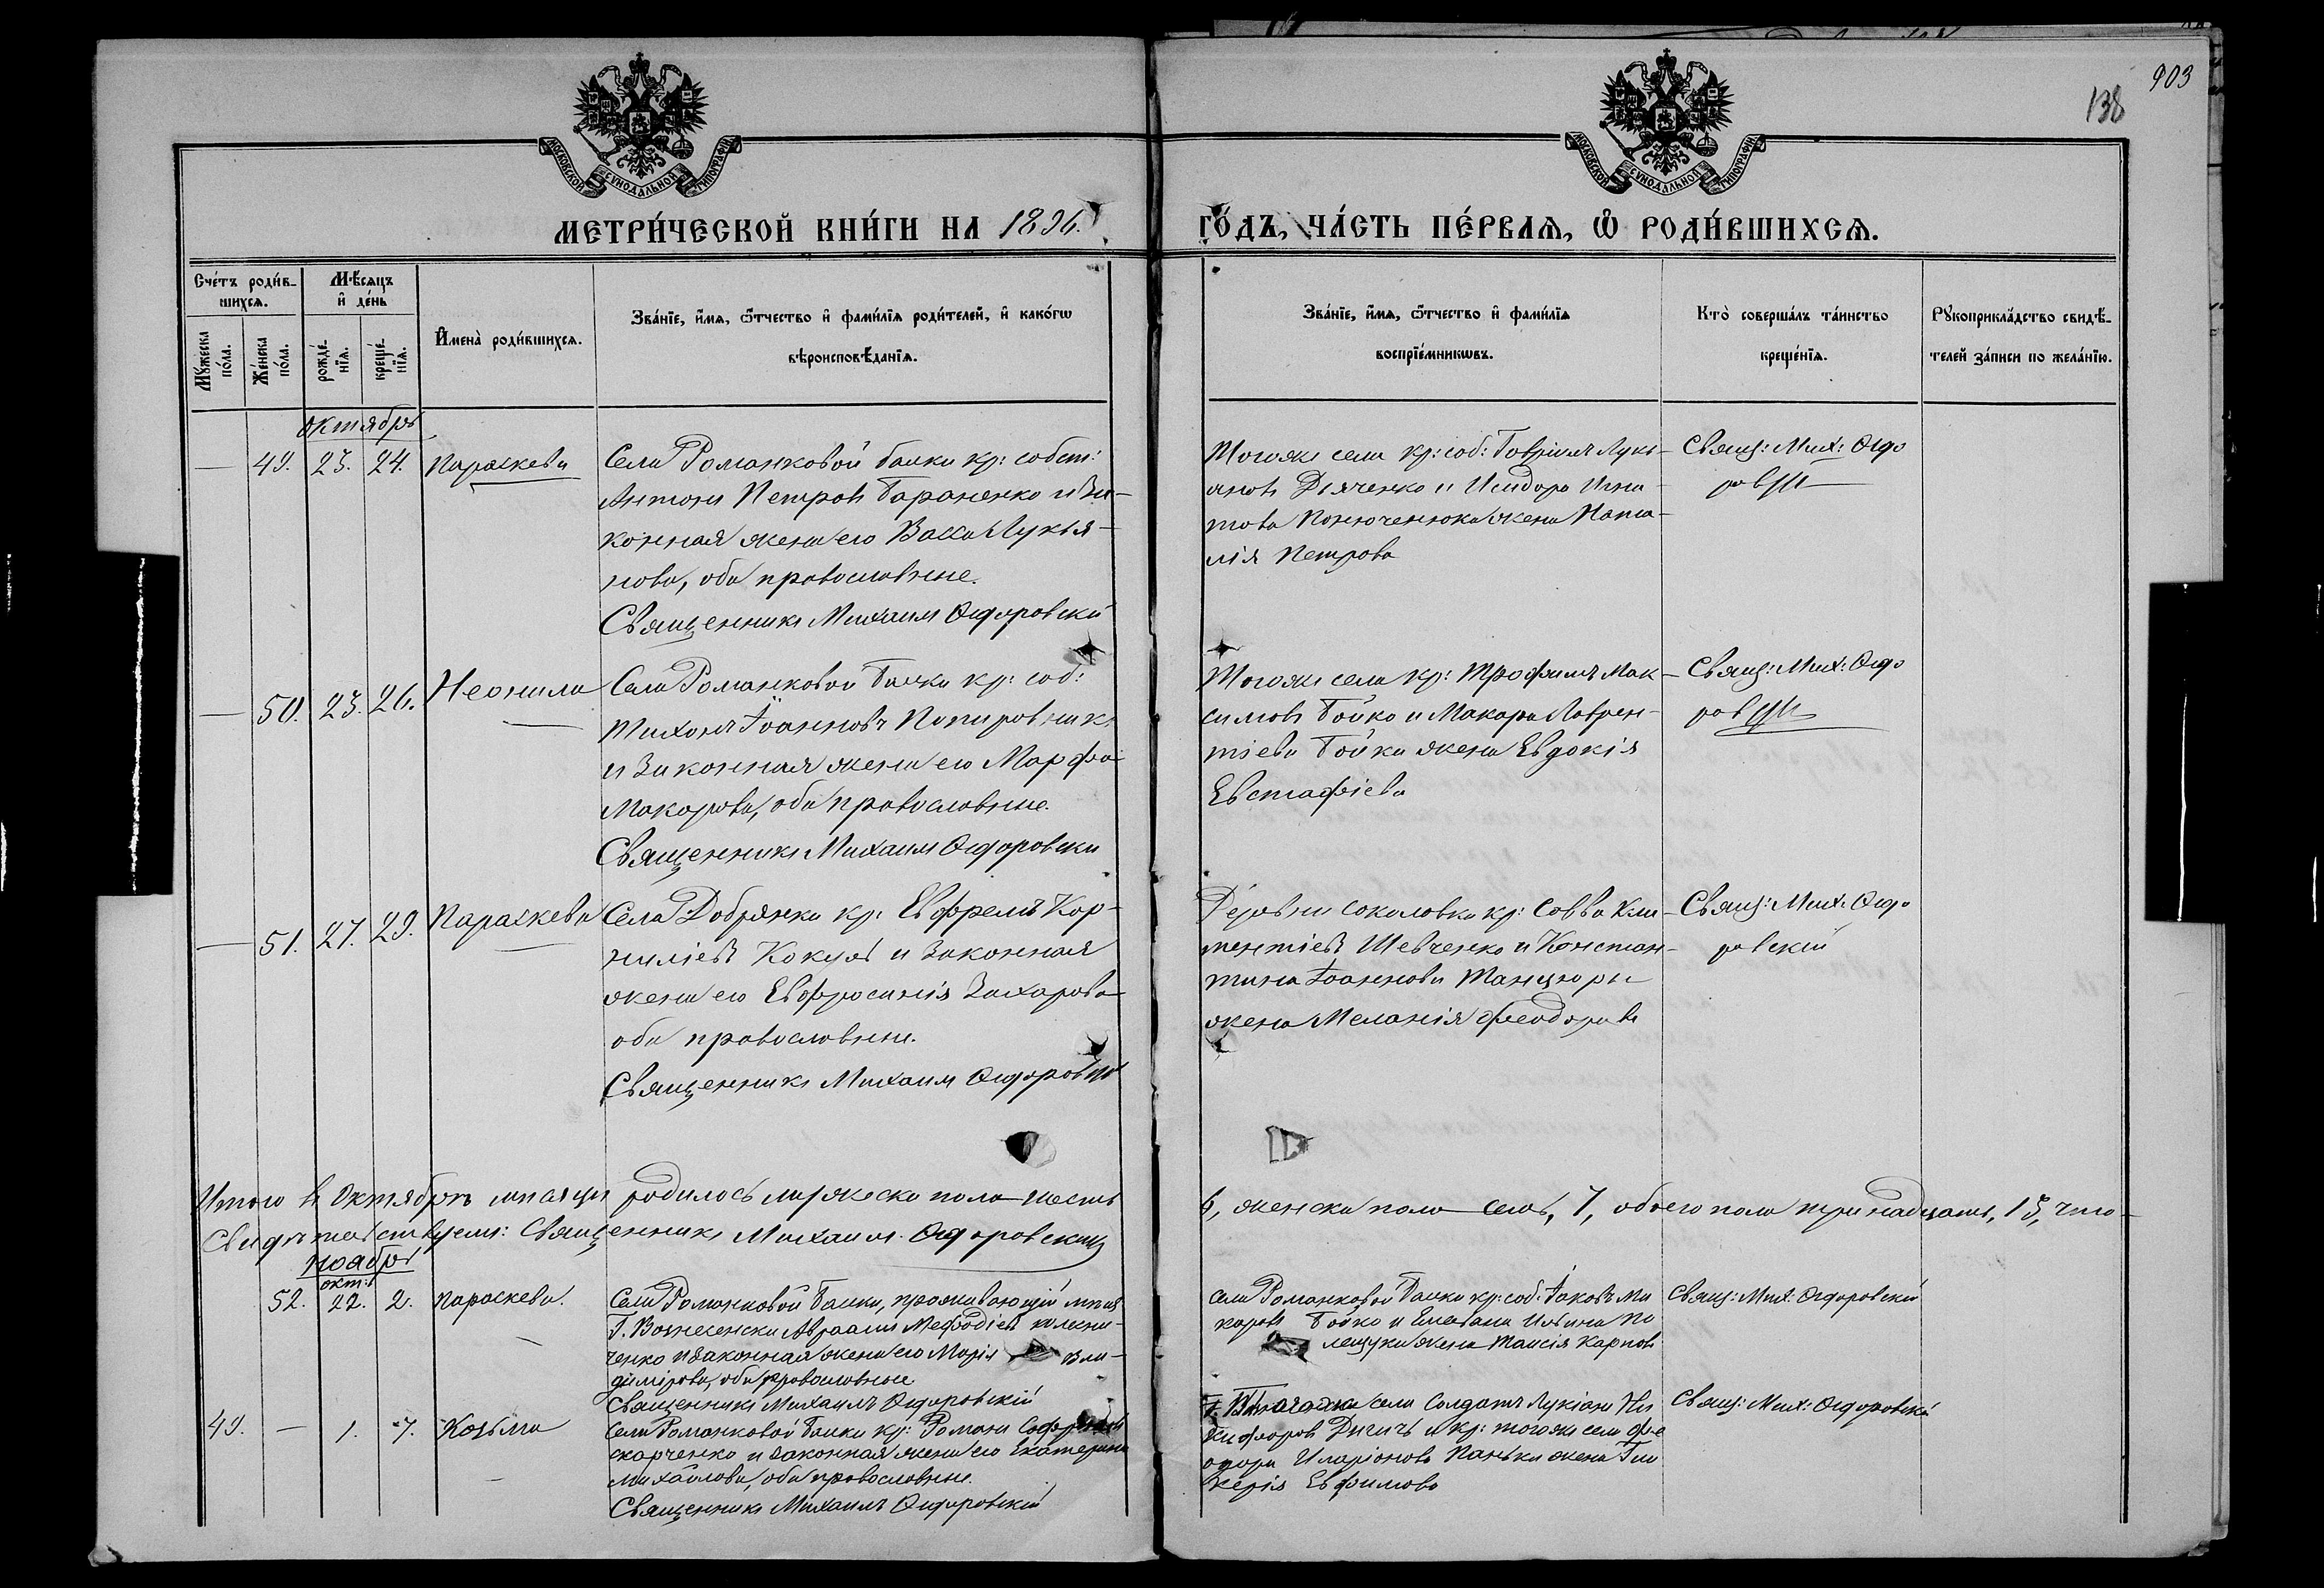 903
138
МОСКОВСКОЙ СѴНОДАЛЬНОЙ ТИПОГРАФІИ
МОСКОВСКОЙ СѴНОДАЛЬНОЙ ТИПОГРАФІИ
МЕТРИ́ЧЕСКОЙ КНИ́ГИ НА 1896. ГО́ДЪ, ЧА́СТЬ ПЕ́РВАѦ, Ѡ РОДИ́ВШИХСѦ.
Сче́тъ роди́в-
шихсѧ.
Мѣ́сѧцъ
и де́нь
Мꙋ́жеска
по́ла.
Же́нска
по́ла.
рожде́-
нїѧ.
креще́-
нїѧ.
Имена̀ роди́вшихсѧ.
Зва́нїе, и́мѧ, ѻ́тчество и фами́лїѧ роди́телей, и како́гѡ
вѣроисповѣ́данїѧ.
Зва́нїе, и́мѧ, ѻ́тчество и фами́лїѧ
воспрїе́мникѡвъ.
Кто̀ соверша́лъ та́инство
креще́нїѧ.
Рꙋкоприкла́дство свидѣ́-
телей за́писи по жела́нїю.
Октябрь
— 49. 23. 24. Параскева
Села Романковой балки кр: собст:
Антонъ Петровъ Бараненко и за-
конная жена его Васса Лукья-
нова, оба православные.
Священникъ Михаилъ Ѳедоровскій
Тогожъ села кр: соб: Гавріилъ Лукь-
яновъ Дьяченко и Исидора Игна-
това жена Ната-
лія Петрова
Свящ: Мих: Ѳедо
— 50. 23. 26. Неонила
Села Романковой балки кр: соб:
Тихонъ Іоанновъ Папировникъ
и законная жена его Марфа
Макарова, оба православные.
Священникъ Михаилъ Ѳедоровскій
Тогожъ села кр: Трофимъ Мак-
симовъ Бойко и Макара Лаврен-
тіева Бойка жена Евдокія
Евстафіева
Свящ: Мих: Ѳедо
— 51. 27. 29. Параскева
Села Добрянки кр: Евфремъ Кор-
ниліевъ Кокуль и законная
жена его Евфросинія Захарова
оба православные.
Священникъ Михаилъ Ѳедоровскій
Деревни Соколовки кр: Савва Кли-
ментіевъ Шевченко и Констан-
тина Іоаннова Танцюры
жена Меланія Феодорова
Свящ: Мих: Ѳедо
ровскій
Итого въ Октябрѣ мѣсяцѣ родилось мужеска пола шесть 6, женска пола семь, 7, обоего пола тринадцать, 13, что
свидѣтельствуемъ: Священникъ Михаилъ Ѳедоровскій
Ноябрь
окт:
52. 22. 2. Параскева.
Села Романковой Балки, проживающій мѣщ:
Г. Вознесенска Авраамъ Меѳодіевъ Колесни-
ченко и законная жена его Марія Вла-
димірова, оба православные
Священникъ Михаилъ Ѳедоровскій
Села Романковой Балки кр: соб: Іаковъ Ма
каровъ Бойко и Емельяна Ильина По
лещука жена Таисія Карпова
Свящ: Мих: Ѳедоровскій
49. — 1. 7. Козьма
Села Романковой Балки кр: Романъ
и законная жена его Екатерина
Михайлова, оба православные.
Священникъ Михаилъ Ѳедоровскій
села Солдатъ Лукіанъ Ни
кифоровъ и кр: тогожъ села Фе
одора Иларіонова Панька жена Гли
керія Евфимова
Свящ: Мих: Ѳедоровскій